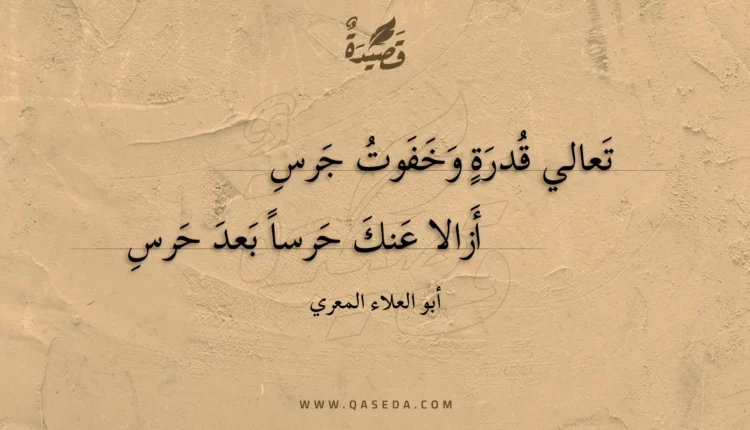 قَصِيْدَةٌ
تَعالي قُدرَةٍ وَخَفَوتُ جَرسِ
أَزالا عَنكَ حَرساً بَعدَ حَرسِ
أبو العلاء المعري
WWW.QASEDA.COM